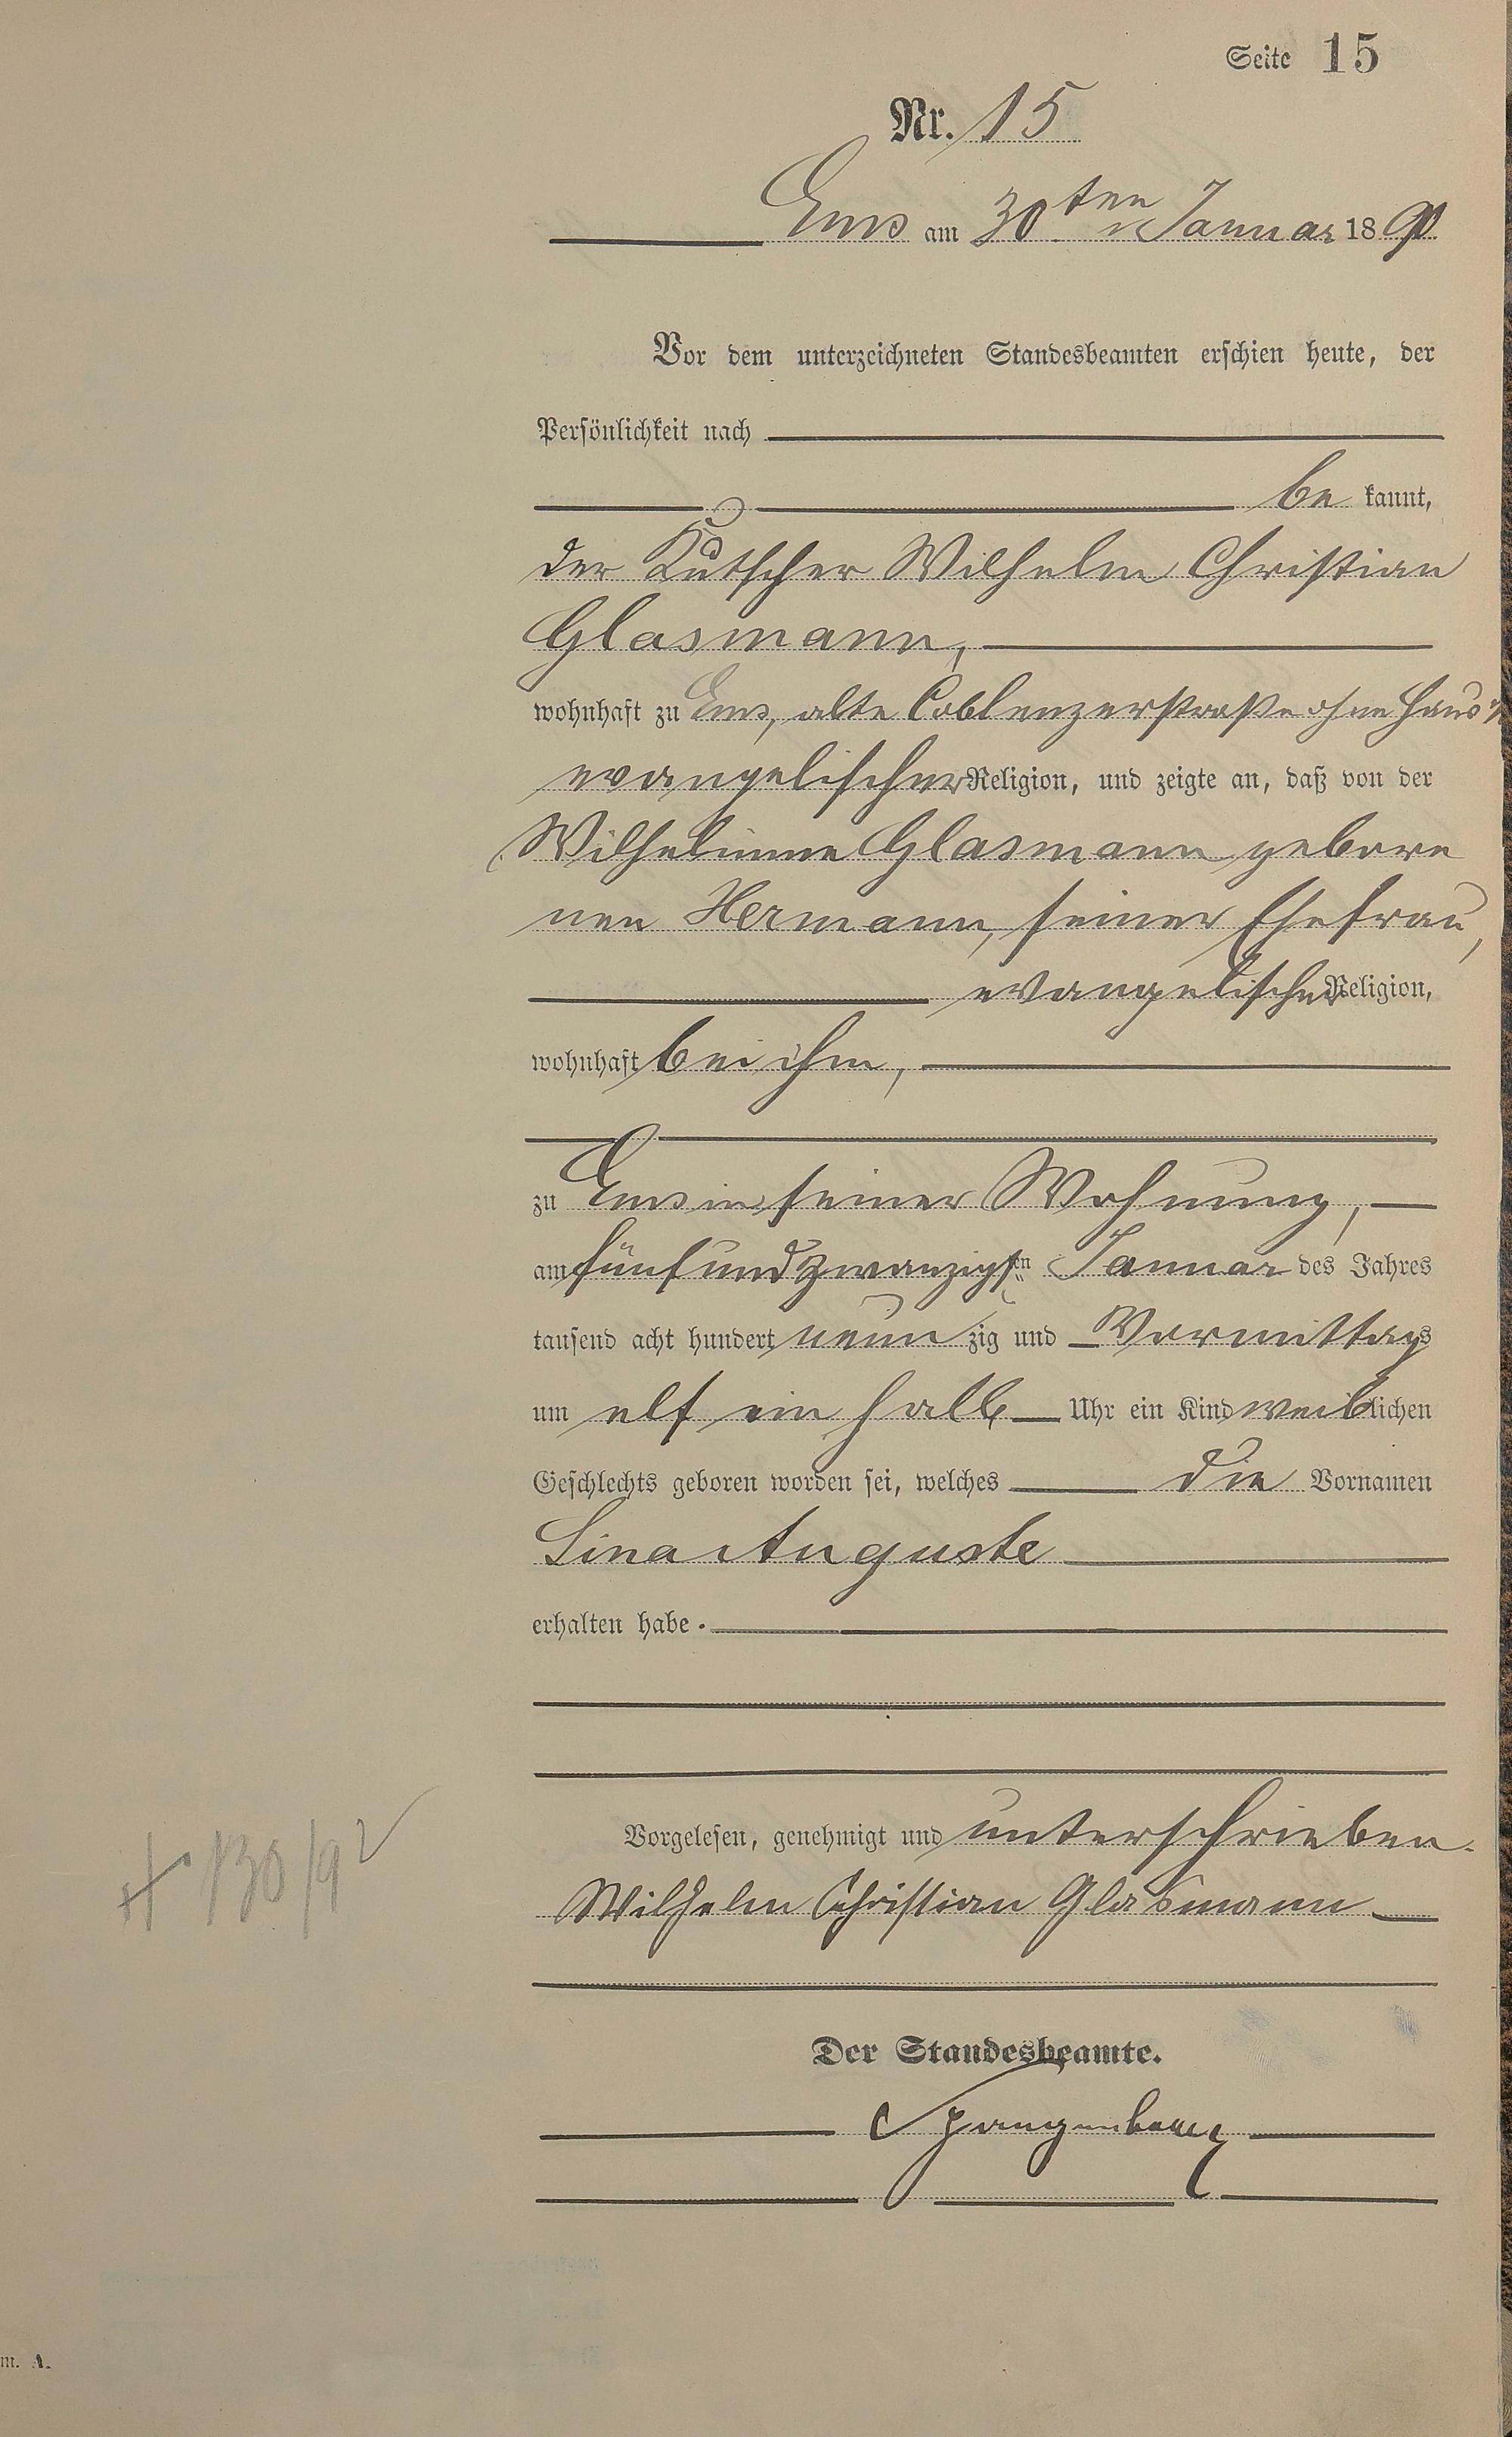 Seite 15
Nr. 15
Ems am 30ten Januar 1890
Vor dem unterzeichneten Standesbeamten erschien heute, der
Persönlichkeit nach
be kannt,
der Kutscher Wilhelm Christian
Glasmann,
wohnhaft zu Ems, alte Coblenzerstraße ohne Haus
evangelischer Religion, und zeigte an, daß von der
Wilhelmine Glasmann gebore
nen Hermann, seiner Ehefrau,
evangelischer Religion,
wohnhaft bei ihm,
zu Ems in seiner Wohnung,
am fünfundzwanzigsten Januar des Jahres
tausend acht hundert neun zig und Vormittags
um elf ein halb Uhr ein Kind weiblichen
Geschlechts geboren worden sei, welches die Vornamen
Lina Auguste
erhalten habe.
Vorgelesen, genehmigt und unterschrieben.
Wilhelm Christian Glasmann
Der Standesbeamte.
Spangenberg
m. A.